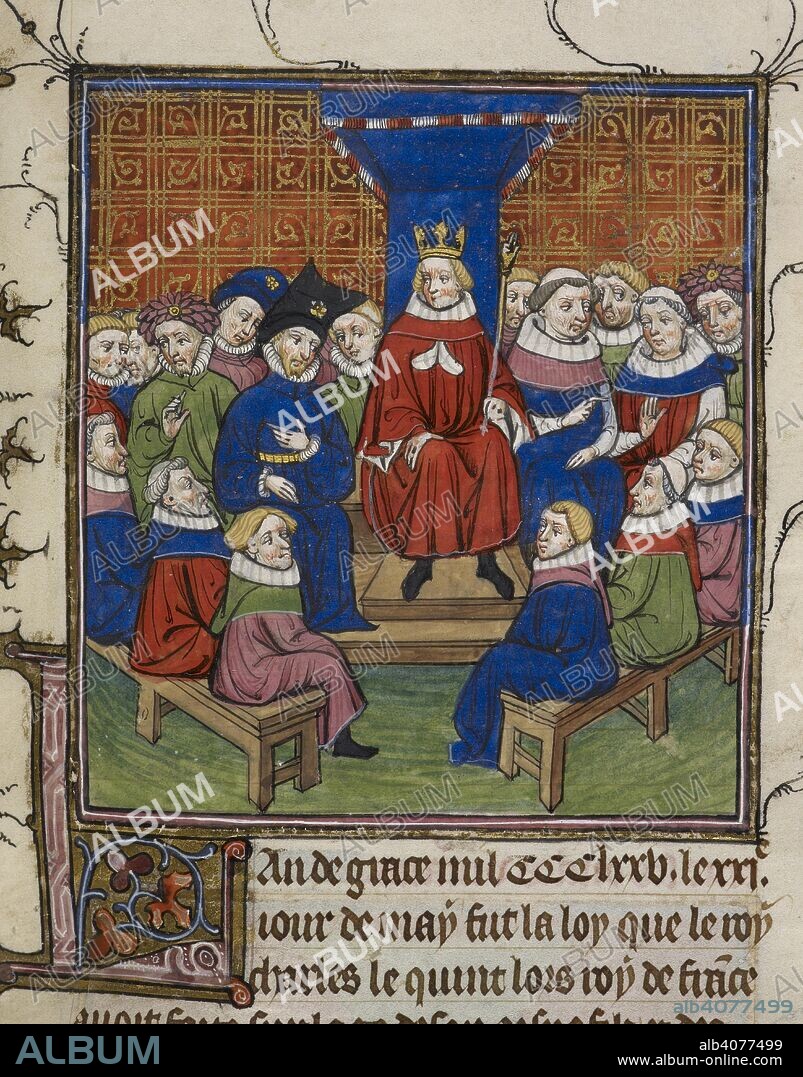 Lan de grace mil CCClxxv. le xxi.e
iour de may fut la loy que le roy
charles le quint lors roy de france
ALBUM
alb4077499
ALBUM
alb4077499
www.album-online.com